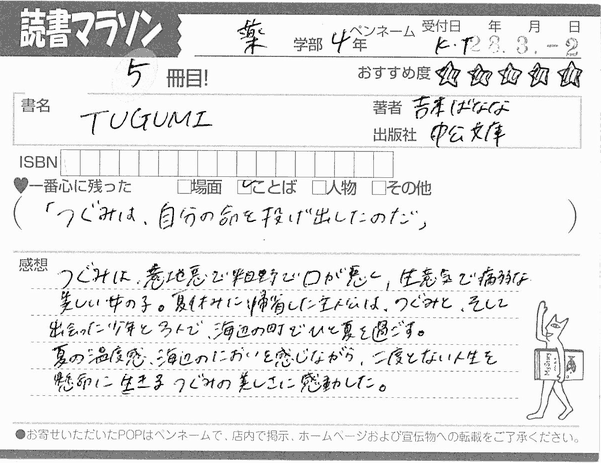 読書マラソン
薬 学部 4年 ペンネーム K.T 受付日 年 月 日 28.3.-2
5 冊目! おすすめ度 ☆☆☆☆☆
書名 TUGUMI 著者 吉本ばなな
出版社 中公文庫
ISBN
♥一番心に残った □場面 ☑ことば □人物 □その他
(「つぐみは、自分の命を投げ出したのだ」)
感想 つぐみは、意地悪で粗野で口が悪く、生意気で病弱な
美しい女の子。夏休みに帰省した主人公は、つぐみと、そして
出会った少年と3人で、海辺の町でひと夏を過ごす。
夏の温度感、海辺のにおいを感じながら、二度とない人生を
懸命に生きるつぐみの美しさに感動した。
●お寄せいただいたPOPはペンネームで、店内で掲示、ホームページおよび宣伝物への転載をご了承ください。